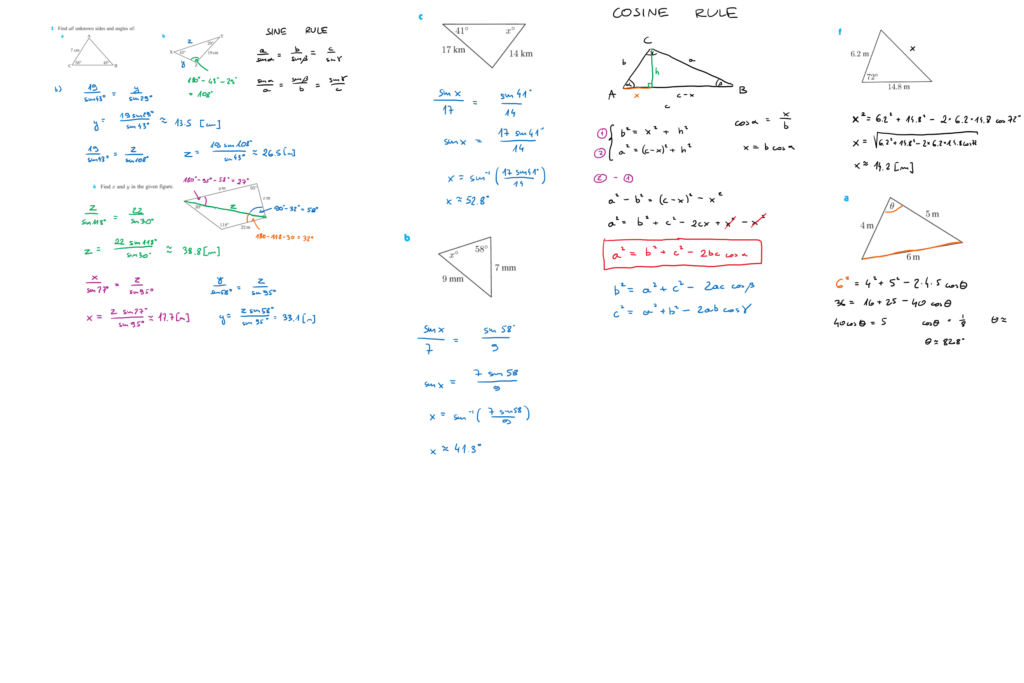 SINE RULE
1 Find all unknown sides and angles of:
a
b
7 cm
19 cm
a/sinα = b/sinβ = c/sinγ
sinα/a = sinβ/b = sinγ/c
180° - 43° - 29°
= 108°
b)
19/sin43° = y/sin29°
y = 19 sin29°/sin43° ≈ 13.5 [cm]
19/sin43° = z/sin108°
z = 19 sin108°/sin43° ≈ 26.5 [cm]
Find x and y in the given figure.
180° - 95° - 58° = 27°
95°
x m
y m
z
30°
118°
22 m
90° - 32° = 58°
180 - 118 - 30 = 32°
z/sin118° = 22/sin30°
z = 22 sin118°/sin30° ≈ 38.8 [m]
x/sin27° = z/sin95°
x = z sin27°/sin95° ≈ 17.7 [m]
y/sin58° = z/sin95°
y = z sin58°/sin95° ≈ 33.1 [m]
c
41°
x°
17 km
14 km
sinx/17 = sin41°/14
sinx = 17 sin41°/14
x = sin⁻¹(17 sin41°/14)
x ≈ 52.8°
b
58°
x°
7 mm
9 mm
sinx/7 = sin58°/9
sinx = 7 sin58/9
x = sin⁻¹(7 sin58/9)
x ≈ 41.3°
COSINE RULE
C
b
a
h
α
β
A
x
c-x
B
c
① b² = x² + h²
② a² = (c-x)² + h²
cosα = x/b
x = b cosα
② - ①
a² - b² = (c-x)² - x²
a² = b² + c² - 2cx + x² - x²
a² = b² + c² - 2bc cosα
b² = a² + c² - 2ac cosβ
c² = a² + b² - 2ab cosγ
f
6.2 m
x
72°
14.8 m
x² = 6.2² + 14.8² - 2·6.2·14.8 cos72°
x = √6.2²+14.8²-2·6.2·14.8cos72
x ≈ 14.2 [m]
a
θ
5 m
4 m
6 m
6² = 4² + 5² - 2·4·5 cosθ
36 = 16 + 25 - 40 cosθ
40cosθ = 5
cosθ = 1/8
θ ≈
θ ≈ 82.8°